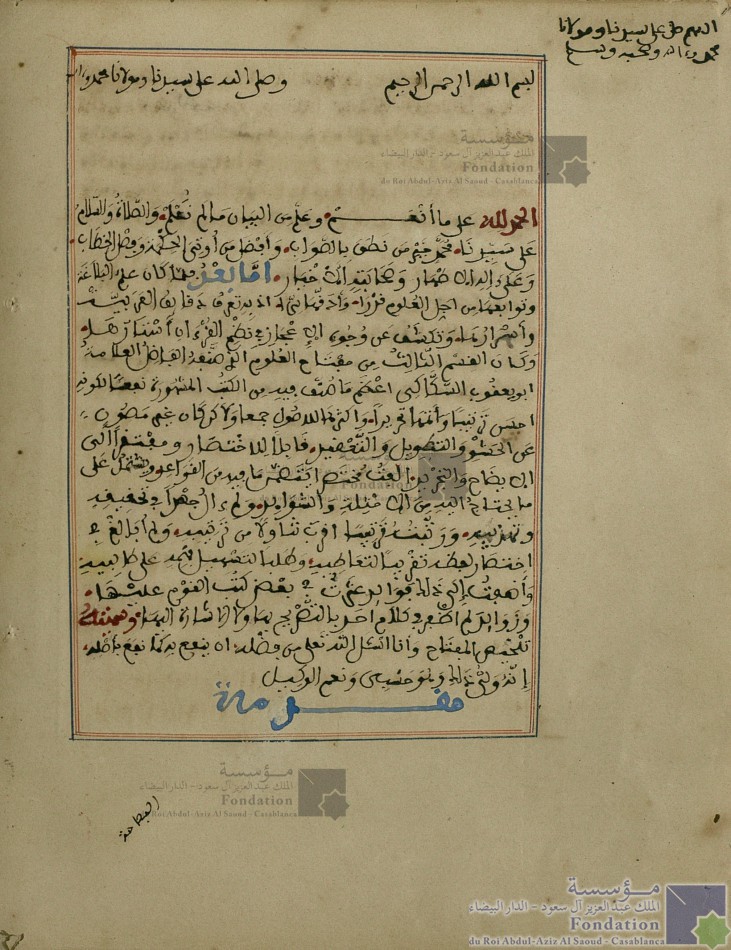 اللهم صل على سيدنا ومولانا
محمد وءاله وصحبه وسلم
بسم الله الرحمن الرحيم وصلى الله على سيدنا ومولانا محمد وءاله
الحمد لله على ما أنعم وعلم من البيان ما لم نعلم والصلاة والسلام
على سيدنا محمد خير من نطق بالصواب وأفضل من أوتي الحكمة وفصل الخطاب
وعلى ءاله الاطهار وصحابته الاخيار أما بعد فلما كان علم البلاغة
وتوابعها من اجل العلوم قدرا وأدقها سرا اذ به تعرف دقايق العربية
وأسرارها وتكشف عن وجوه الاعجاز في نظم القرءان أستارها
وكان القسم الثالث من مفتاح العلوم الذي صنفه الفاضل العلامة
ابو يعقوب السكاكي اعظم ما صنف فيه من الكتب المشهورة نفعا لكونه
احسن ترتيبا وأتمها تحريرا وأكثرها للاصول جمعا ولاكن كان غير مصون
عن الحشو والتطويل والتعقيد قابلا للاختصار ومفتقرا الى
الايضاح والتجريد ألفت مختصرا يتضمن ما فيه من القواعد ويشتمل على
ما يحتاج اليه من الامثلة والشواهد ولم ءال جهدا في تحقيقه
وتهذيبه ورتبته ترتيبا اقرب تناولا من ترتيبه ولم أبالغ في
اختصار لفظه تقريبا لتعاطيه وطلبا لتسهيل فهمه على طالبيه
وأضفت الى ذلك فوايد عثرت في بعض كتب القوم عليها
وزوايد لم اظفر في كلام احد بالتصريح بها ولا الاشارة اليها وسميته
تلخيص المفتاح وأنا اسئل الله تعلى من فضله ان ينفع به كما نفع بأصله
إنه ولي ذلك وهو حسبي ونعم الوكيل
مقدمة
الفصاحة
مؤسسة
الملك عبد العزيز آل سعود - الدار البيضاء
Fondation
du Roi Abdul-Aziz Al Saoud - Casablanca